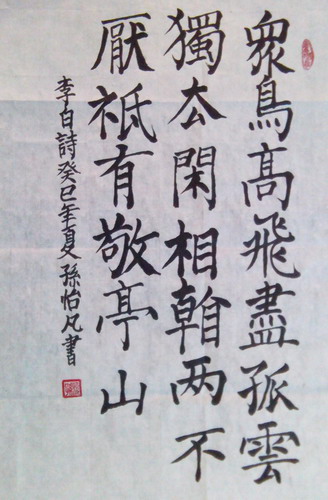 眾鳥髙飛盡孤雲
獨厺閑相看两不
厭祗有敬亭山
李白詩癸巳年夏孫怡凡書